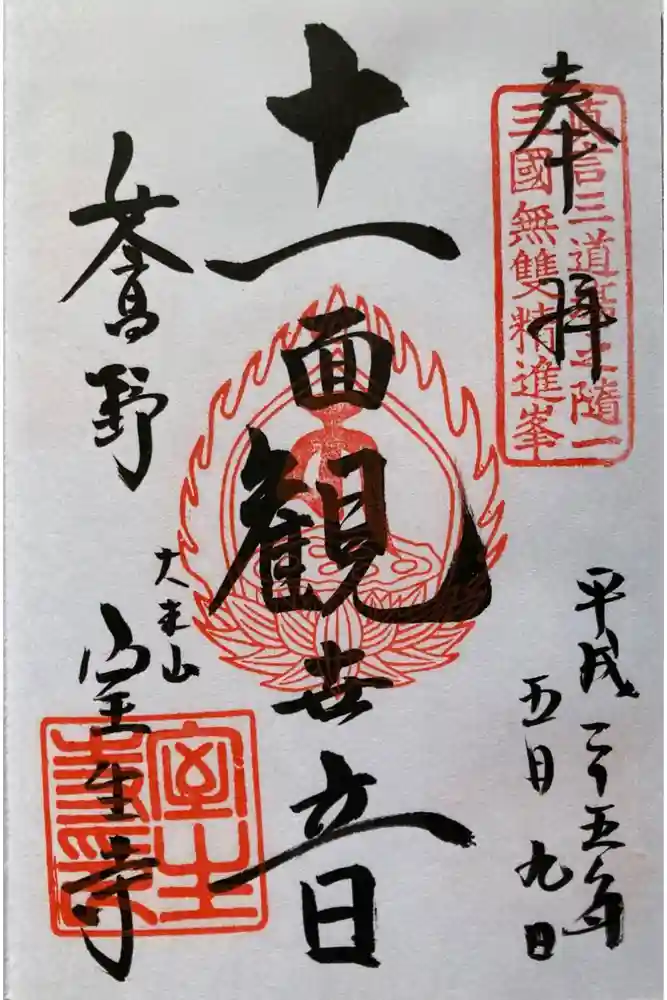 奉拜
眞言三道場之隨一
三國無雙精進峯
平成二十五年
五月九日
十一面観世音
女人高野
大本山
室生寺